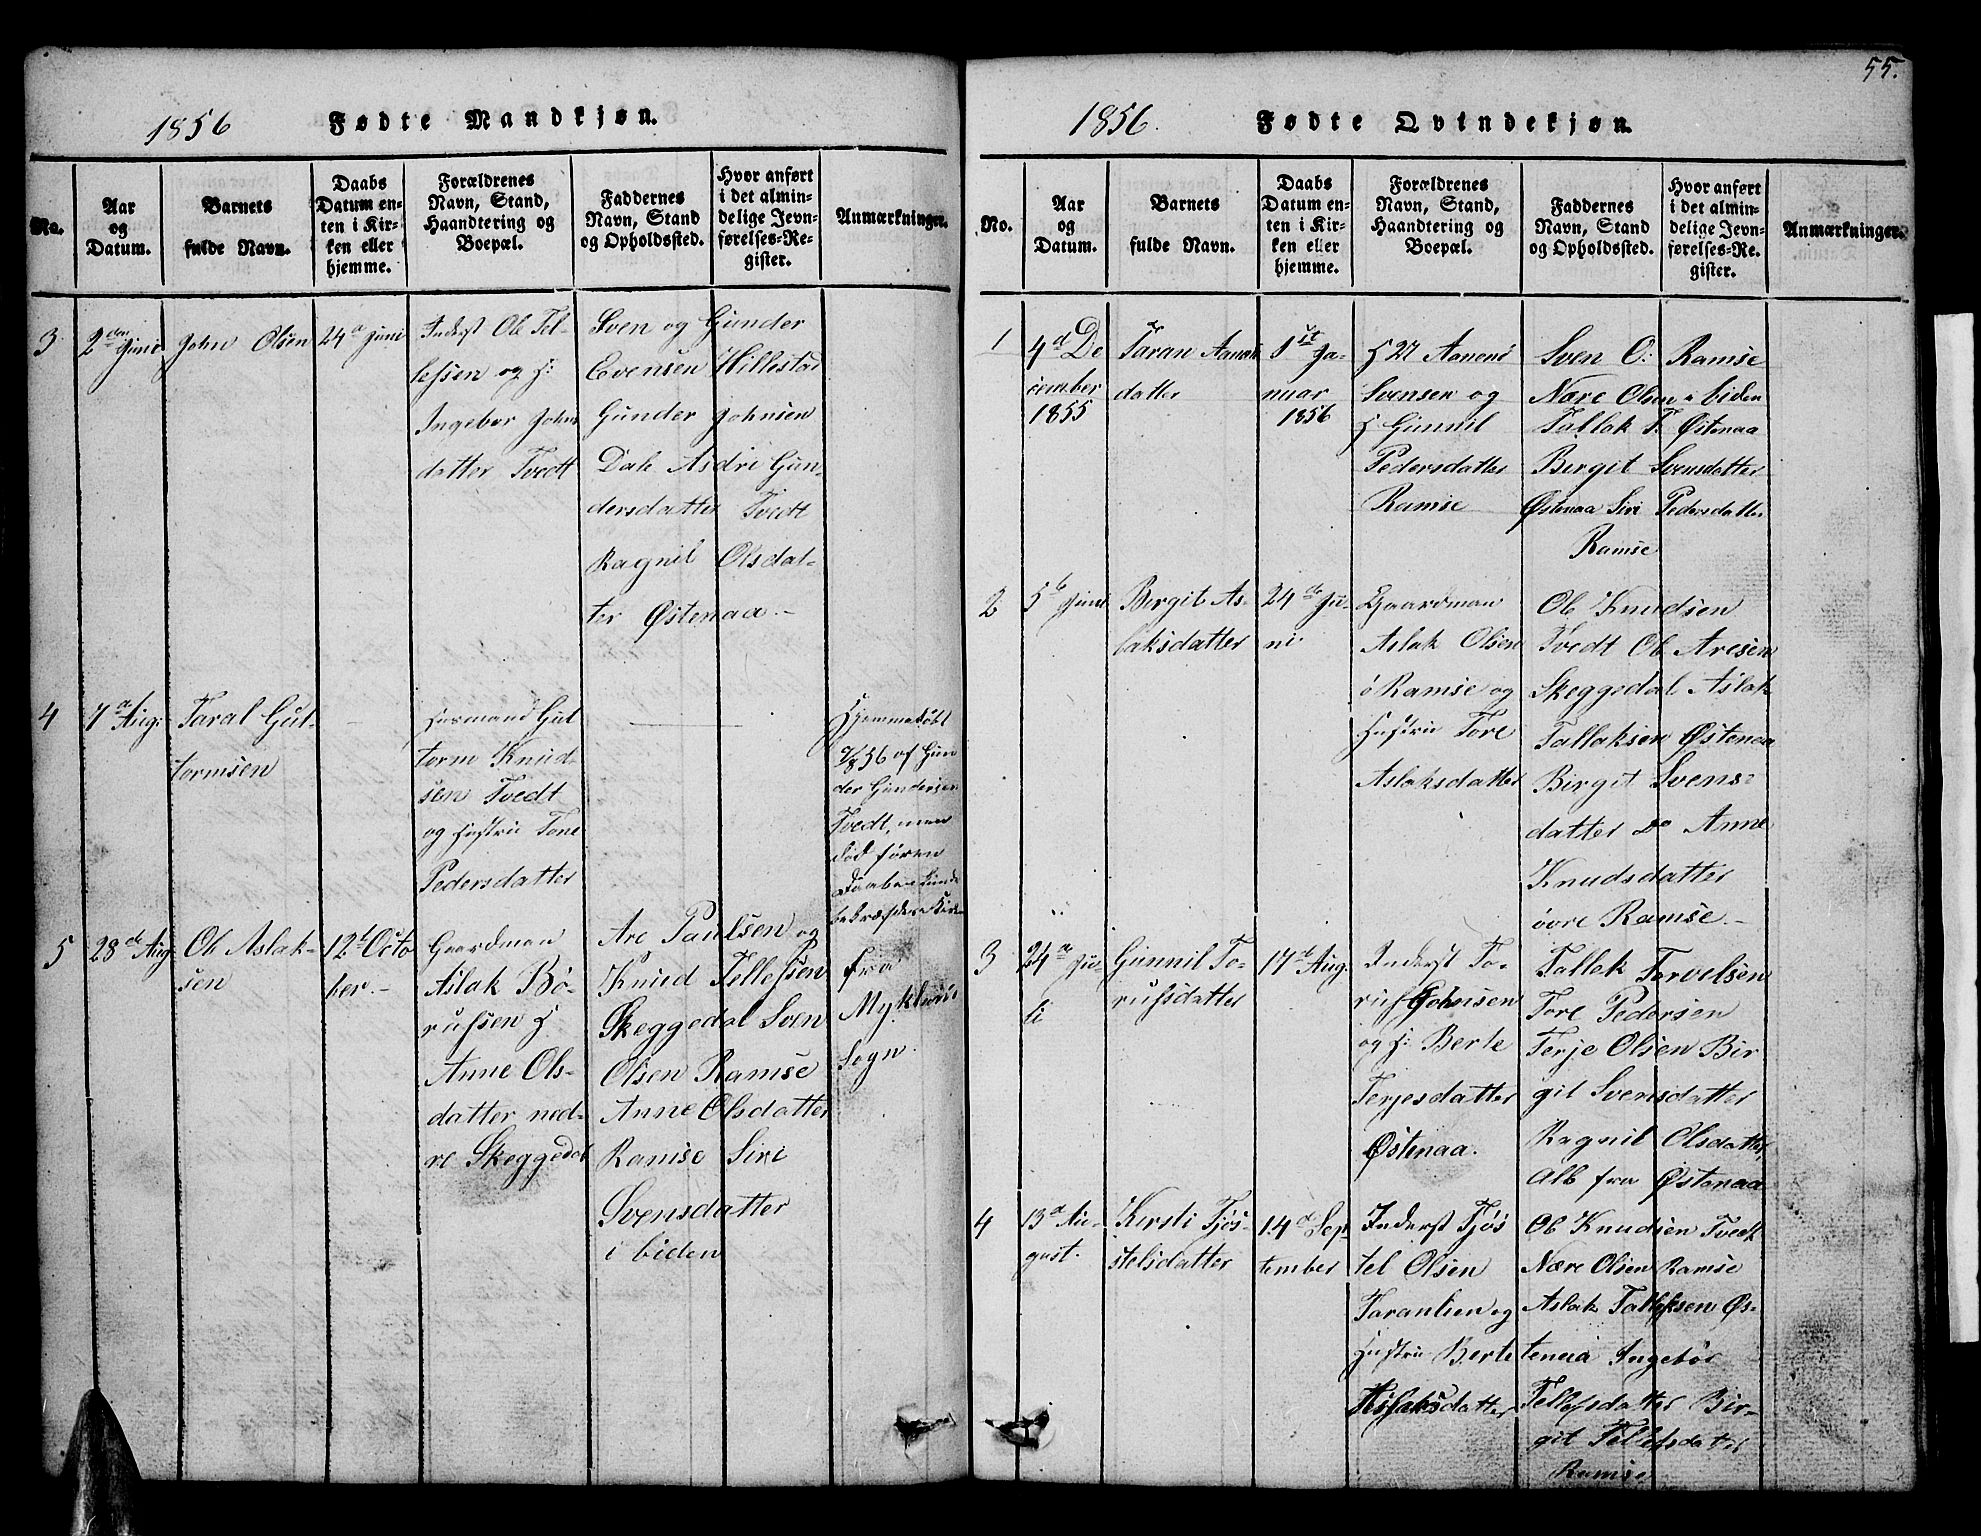 55.
1856 Fødte Mandkjøn.
No.
Aar
og
Datum.
Barnets
fulde Navn.
Daabs
Datum en-
ten i Kir-
ken eller
hjemme.
Forældrenes
Navn, Stand,
Haandtering og
Boepæl.
Faddernes
Navn, Stand
og Opholdssted.
Hvor anført
i det almin-
delige Jevn-
førelses-Re-
gister.
Anmærkninger.
3
2den Juni
John Olsen
24d Juni
Inderst Ole Tel-
lefsen og H:
Ingebor Johns
datter Tvedt
Sven og Gunder
Evensen Hillestad
Gunder Johnsen
Dale Asdri Gun-
dersdatter Tvedt
Ragnil Olsdat-
ter Østenaa.-
4
7d Aug:
Taral Gut-
tormsen
Husmand Gut
torm Knud-
sen Tvedt
og Hustru Tone
Pedersdatter
Hjemmedøbt
af Gun
der Gundersen
Tvedt, men
død føren
Daaben kunde
bekræftes i Kirken
5
28de Aug
Ole Aslak-
sen
12t Octo
ber.-
Gaardman
Aslak Bø-
rufsen H
Anne Ols-
datter ned-
re Skeggedal
Are Paulsen og
Knud Tellefsen
Skeggedal Sven
Olsen Ramse
Anne Olsdatter
Ramse Siri
Svensdatter
i biden
fra
Myklands
Sogn.
1856. Fødte Qvindekjøn.
No.
Aar
og
Datum.
Barnets
fulde Navn.
Daabs
Datum en-
ten i Kir-
ken eller
hjemme.
Forældrenes
Navn, Stand,
Haandtering og
Boepæl.
Faddernes
Navn, Stand
og Opholdssted.
Hvor anført
i det almin-
delige Jevn-
førelses-Re-
gister.
Anmærkninger.
1
4d De
cember
1855
Taran Aanens
datter
1ste Ja-
nuar
1856
Aanend
Svensen og
H Gunnil
Pedersdatter
Ramse
Sven O: Ramse
Nære Olsen i biden
Tallak T: Østenaa
Birgit Svensdatter
Østenaa Siri Pedersdatter
Ramse
2
5t Juni
Birgit As-
laksdatter
24de Ju-
ni
Gaardman
Aslak Olsen
ø Ramse og
Hustru Tore
Aslaksdatter
Ole Knudsen
Tvedt Ole Aresen
Skeggedal Aslak
Tallaksen Østenaa
Birgit Svens-
datter Do Anne
Knudsdatter
øvre Ramse.-
3
24d Ju-
li
Gunnil To-
rufsdatter
17d Aug.
Inderst To-
ruf Johnsen
og H: Berte
Terjesdatter
Østenaa.
Tallak Torvelsen
Tore Pedersen
Terje Olsen Bir
git Svensdatter
Ragnil Olsdatter,
Alle fra Østenaa
4
13d Au-
gust.
Kersti Tjøs-
stelsdatter
14d Sep
tember
Inderst Tjøs
tel Olsen
Taranlien og
Hustru Berte
Aslaksdatter
Ole Knudsen Tvedt
Nære Olsen Ramse
Aslak Tallaksen Øs-
tenaa Ingebør
Tellefsdatter Bir-
git Tellefsdatter
Ramse